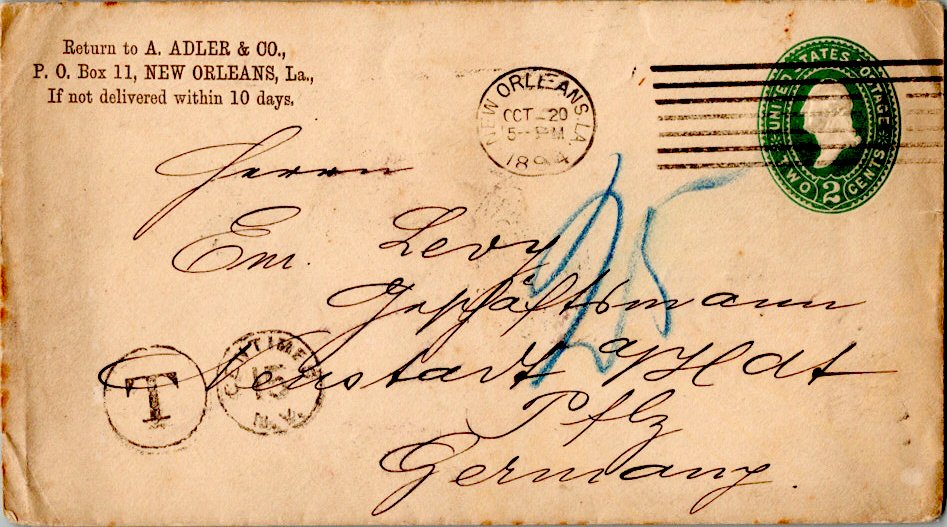 Return to A. ADLER & CO.,
P. O. Box 11, NEW ORLEANS, La.,
If not delivered within 10 days.
NEW ORLEANS, LA.
OCT 20
5-PM
1894
UNITED STATES POSTAGE
TWO 2 CENTS
Herrn
Em. Levy
Geschäftsmann
Neustadt a/Hdt
Pflz
Germany.
25
T
CENTIMES
15
N.Y.